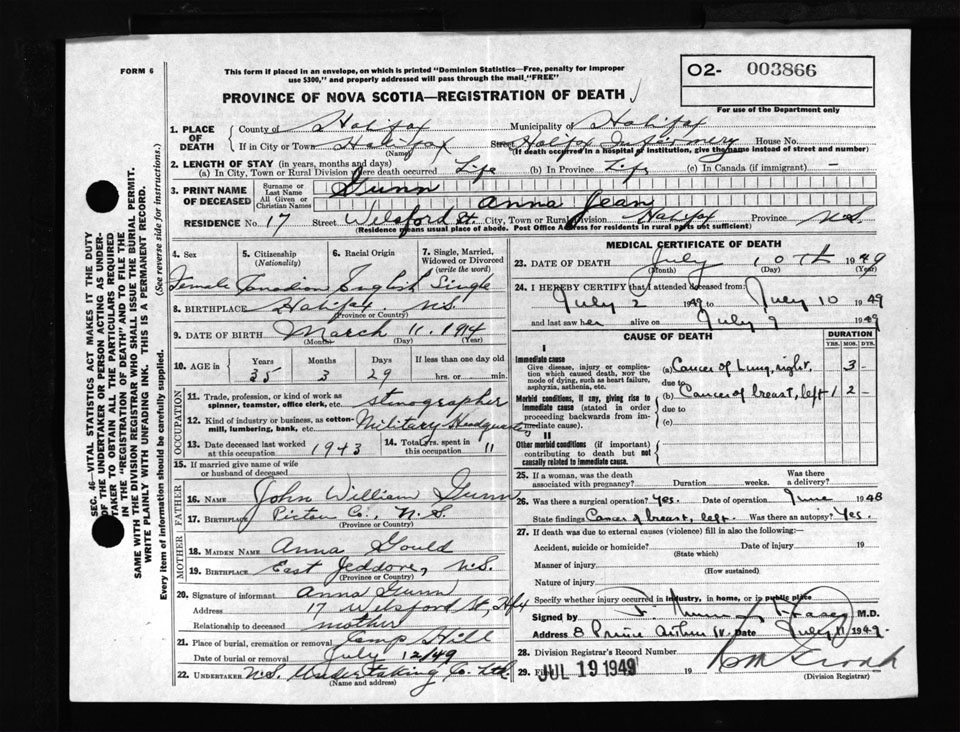 FORM 6
This form if placed in an envelope, on which is printed "Dominion Statistics—Free, penalty for improper
use $300," and properly addressed will pass through the mail "FREE"
O2- 003866
For use of the Department only
PROVINCE OF NOVA SCOTIA—REGISTRATION OF DEATH
1. PLACE OF DEATH
County of Halifax Municipality of Halifax
If in City or Town Halifax Street Halifax Infirmary House No.
(Name) (If death occurred in a hospital or institution, give the name instead of street and number)
2. LENGTH OF STAY (in years, months and days)
(a) In City, Town or Rural Division where death occurred Life (b) In Province Life (c) In Canada (if immigrant) —
3. PRINT NAME OF DECEASED
Surname or Last Name Gunn
All Given or Christian Names Anna Jean
RESIDENCE No. 17 Street Welsford St. City, Town or Rural Division Halifax Province N.S.
(Residence means usual place of abode. Post Office Address for residents in rural parts not sufficient)
4. Sex 5. Citizenship (Nationality) 6. Racial Origin 7. Single, Married, Widowed or Divorced (write the word)
Female Canadian English Single
8. BIRTHPLACE Halifax, N.S.
(Province or Country)
9. DATE OF BIRTH March 11. 1914
(Month) (Day) (Year)
10. AGE in Years Months Days If less than one day old
35 3 29 hrs. or min.
OCCUPATION
11. Trade, profession, or kind of work as spinner, teamster, office clerk, etc. stenographer
12. Kind of industry or business, as cotton-mill, lumbering, bank, etc. Military Headquarters
13. Date deceased last worked at this occupation 1943 14. Total yrs. spent in this occupation 11
15. If married give name of wife or husband of deceased
FATHER
16. NAME John William Gunn
17. BIRTHPLACE Pictou Co., N.S.
(Province or Country)
MOTHER
18. MAIDEN NAME Anna Gould
19. BIRTHPLACE East Jeddore, N.S.
(Province or Country)
20. Signature of informant Anna Gunn
Address 17 Welsford St, Hfx
Relationship to deceased mother
21. Place of burial, cremation or removal Camp Hill
Date of burial or removal July 12/49
22. UNDERTAKER N.S. Undertaking Co. Ltd.
(Name and address)
MEDICAL CERTIFICATE OF DEATH
23. DATE OF DEATH July 10th 1949
(Month) (Day) (Year)
24. I HEREBY CERTIFY that I attended deceased from:
July 2 1949 to July 10 1949
and last saw her alive on July 9 1949
CAUSE OF DEATH DURATION
YRS. MOS. DYS.
I
Immediate cause
Give disease, injury or complication which caused death, NOT the mode of dying, such as heart failure, asphyxia, asthenia, etc.
(a) Cancer of Lung, right. 3 -
due to
Morbid conditions, if any, giving rise to immediate cause (stated in order proceeding backwards from immediate cause).
(b) Cancer of breast, left 1 2 -
due to
(c)
II
Other morbid conditions (if important) contributing to death but not causally related to immediate cause.
25. If a woman, was the death associated with pregnancy? Duration weeks. Was there a delivery?
26. Was there a surgical operation? Yes. Date of operation June 1948
State findings Cancer of breast, left. Was there an autopsy? Yes.
27. If death was due to external causes (violence) fill in also the following:—
Accident, suicide or homicide? Date of injury 19
(State which)
Manner of injury
(How sustained)
Nature of injury
Specify whether injury occurred in industry, in home, or in public place
Signed by M.D.
Address 8 Prince Arthur St. Date July 11 1949.
28. Division Registrar's Record Number
29. Filed JUL 19 1949 19
(Division Registrar)
SEC. 46—VITAL STATISTICS ACT MAKES IT THE DUTY
OF THE UNDERTAKER OR PERSON ACTING AS UNDER-
TAKER TO OBTAIN ALL THE PARTICULARS REQUIRED
IN THE "REGISTRATION OF DEATH" AND TO FILE THE
SAME WITH THE DIVISION REGISTRAR WHO SHALL ISSUE THE BURIAL PERMIT.
WRITE PLAINLY WITH UNFADING INK. THIS IS A PERMANENT RECORD.
Every item of information should be carefully supplied. (See reverse side for instructions.)